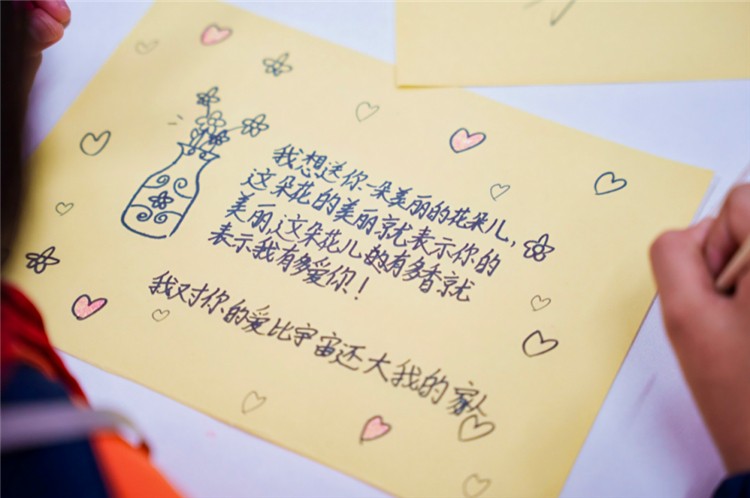 我想送你一朵美丽的花朵儿，
这朵花的美丽就表示你的
美丽，这朵花儿的有多香就
表示我有多爱你！
我对你的爱比宇宙还大我的家人